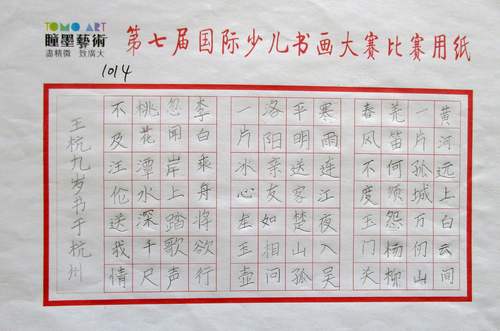 TOMO ART
瞳墨藝術
盡精微 致廣大
第七届国际少儿书画大赛比赛用纸
1014
黄河远上白云间
一片孤城万仞山
羌笛何须怨杨柳
春风不度玉门关
寒雨连江夜入吴
平明送客楚山孤
洛阳亲友如相问
一片冰心在玉壶
李白乘舟将欲行
忽闻岸上踏歌声
桃花潭水深千尺
不及汪伦送我情
王杭九岁书于杭州